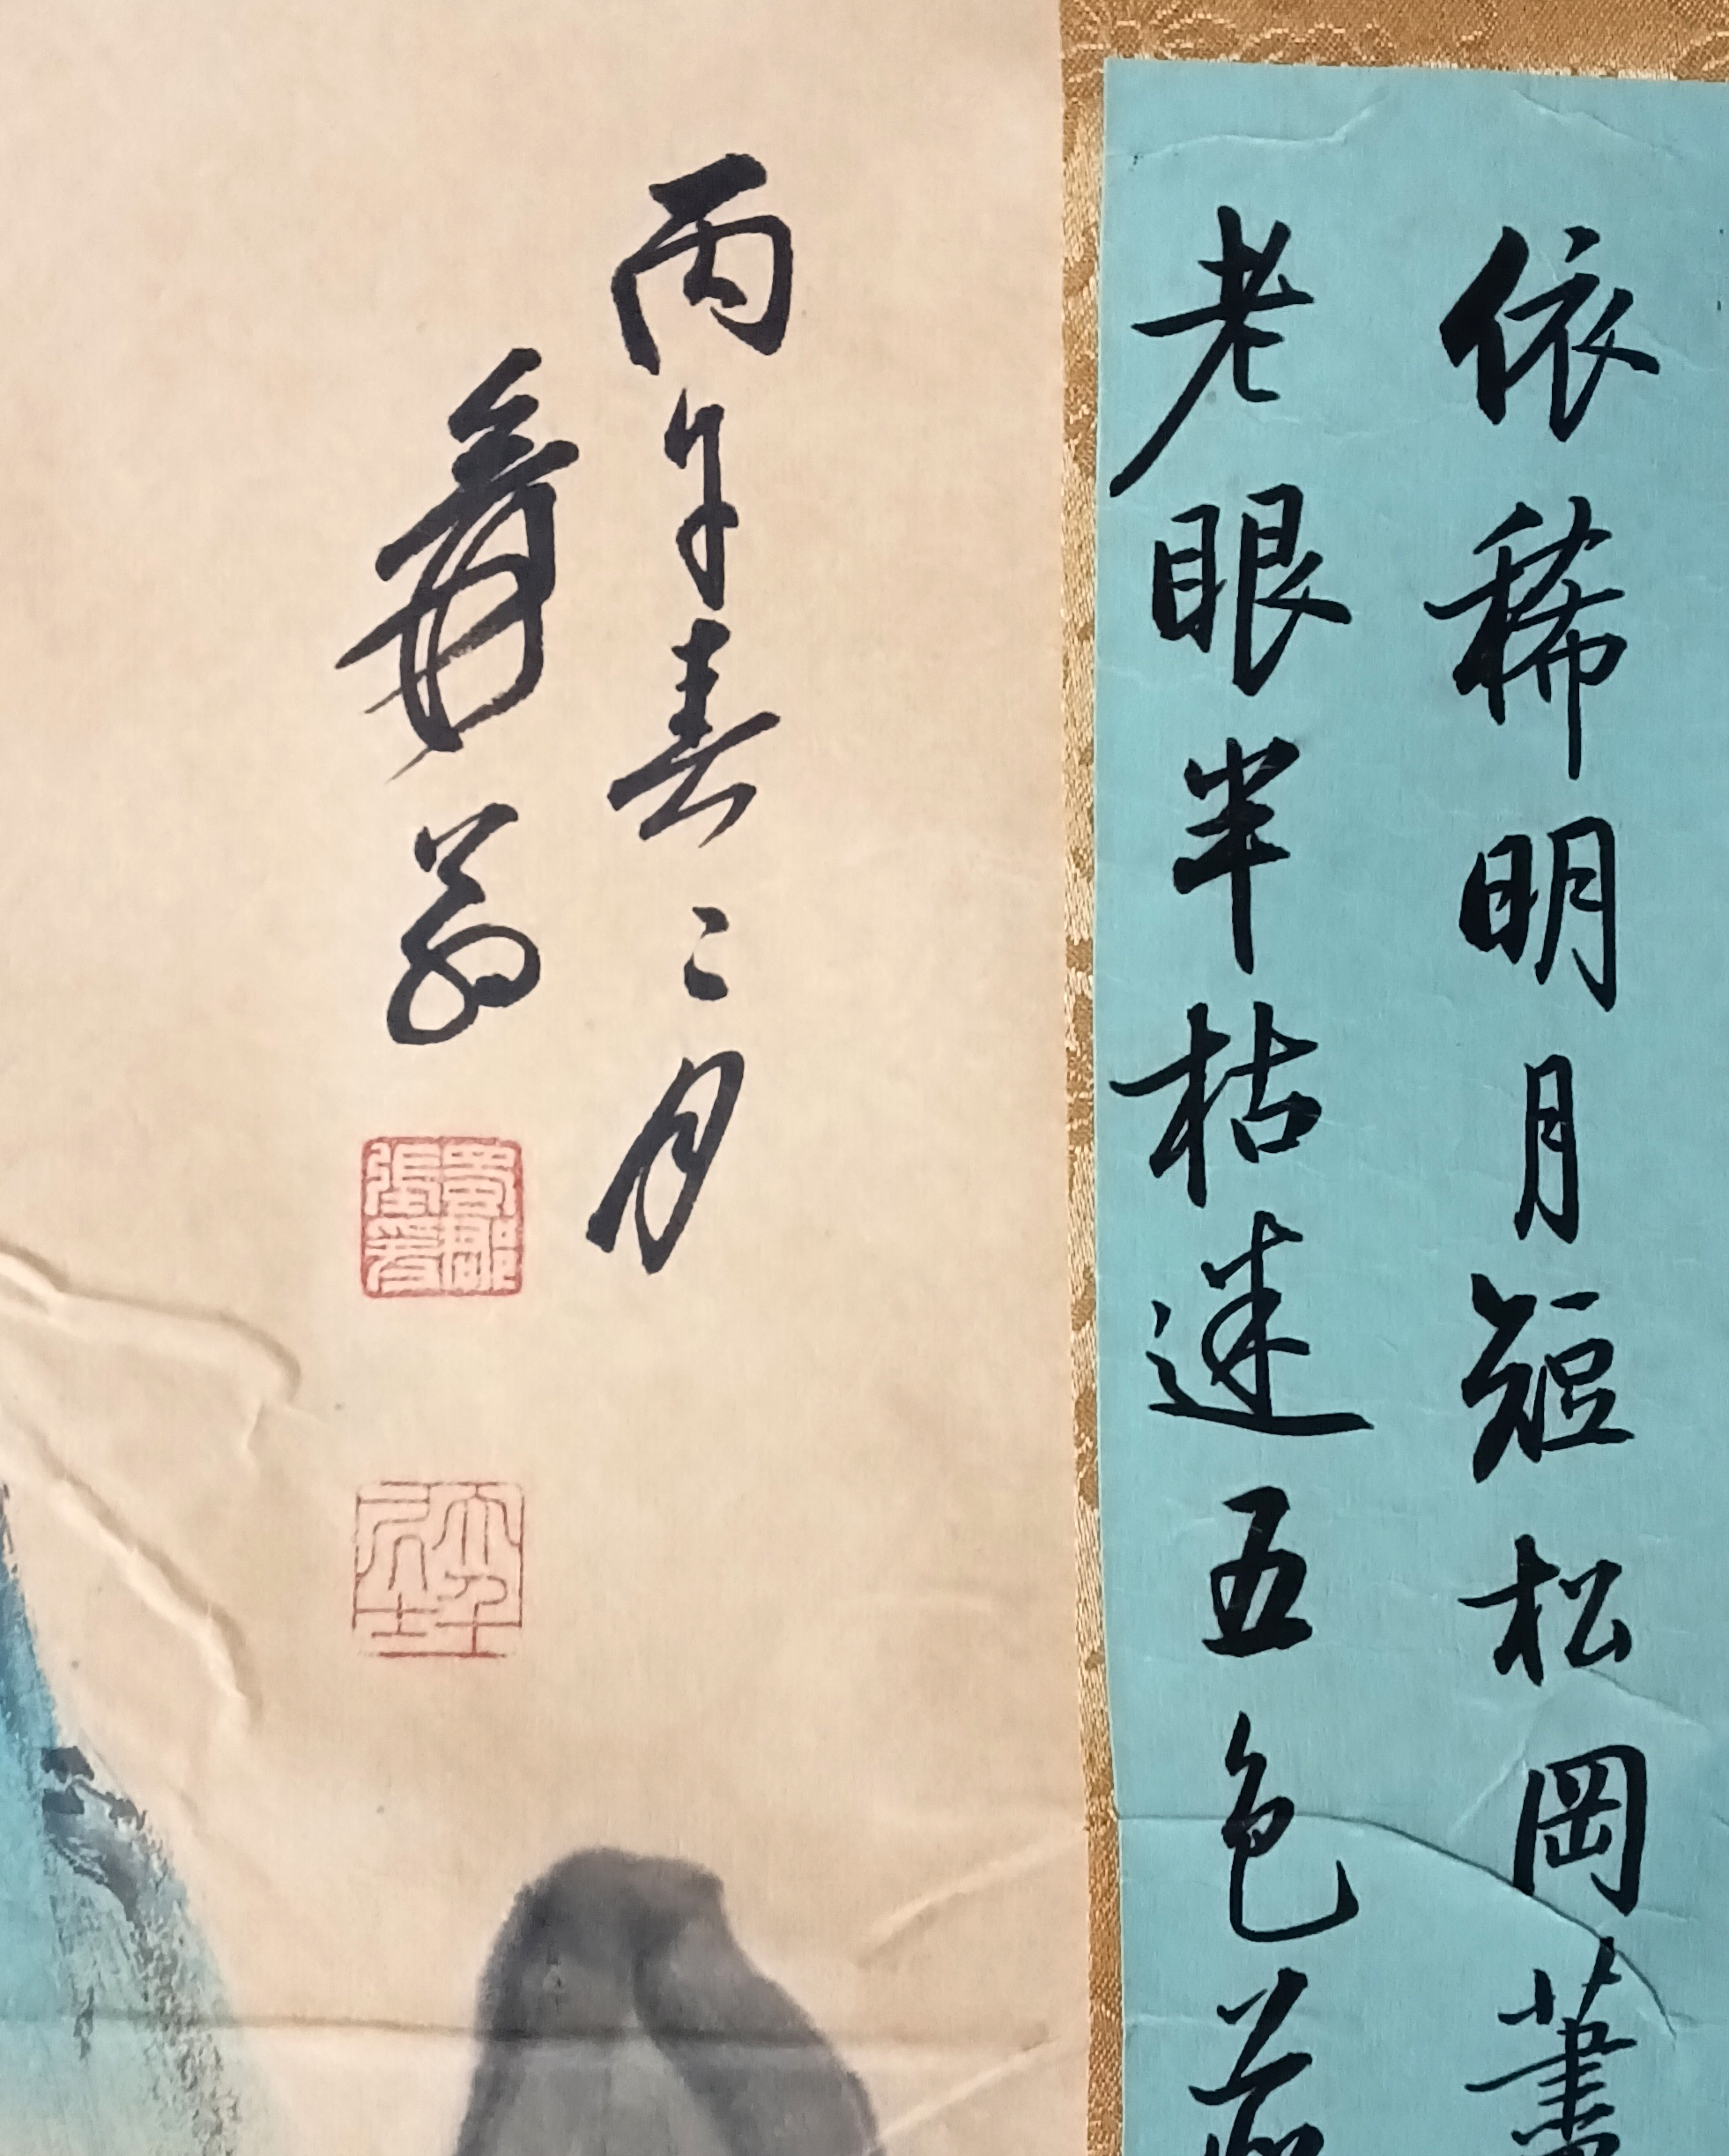 依稀明月短松岡
老眼半枯迷五色
丙午春二月
爰翁
蜀郡張爰
大千居士